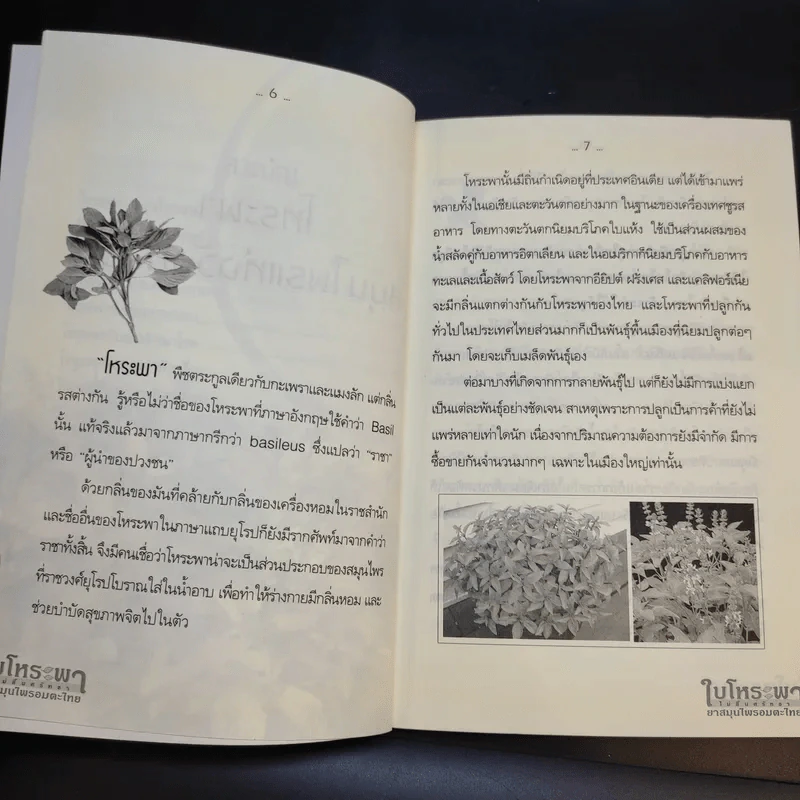 ... 6 ...
"โหระพา" พืชตระกูลเดียวกับกะเพราและแมงลัก แต่กลิ่น
รสต่างกัน รู้หรือไม่ว่าชื่อของโหระพาที่ภาษาอังกฤษใช้คำว่า Basil
นั้น แท้จริงแล้วมาจากภาษากรีกว่า basileus ซึ่งแปลว่า "ราชา"
หรือ "ผู้นำของปวงชน"
ด้วยกลิ่นของมันที่คล้ายกับกลิ่นของเครื่องหอมในราชสำนัก
และชื่ออื่นของโหระพาในภาษาแถบยุโรปก็ยังมีรากศัพท์มาจากคำว่า
ราชาทั้งสิ้น จึงมีคนเชื่อว่าโหระพาน่าจะเป็นส่วนประกอบของสมุนไพร
ที่ราชวงศ์ยุโรปโบราณใส่ในน้ำอาบ เพื่อทำให้ร่างกายมีกลิ่นหอม และ
ช่วยบำบัดสุขภาพจิตไปในตัว
ใบโหระพา
สมุนไพรอมตะไทย
... 7 ...
โหระพานั้นมีถิ่นกำเนิดอยู่ที่ประเทศอินเดีย แต่ได้เข้ามาแพร่
หลายทั้งในเอเชียและตะวันตกอย่างมาก ในฐานะของเครื่องเทศชูรส
อาหาร โดยทางตะวันตกนิยมบริโภคใบแห้ง ใช้เป็นส่วนผสมของ
น้ำสลัดคู่กับอาหารอิตาเลียน และในอเมริกาก็นิยมบริโภคกับอาหาร
ทะเลและเนื้อสัตว์ โดยโหระพาจากอียิปต์ ฝรั่งเศส และแคลิฟอร์เนีย
จะมีกลิ่นแตกต่างกันกับโหระพาของไทย และโหระพาที่ปลูกกัน
ทั่วไปในประเทศไทยส่วนมากก็เป็นพันธุ์พื้นเมืองที่นิยมปลูกต่อๆ
กันมา โดยจะเก็บเมล็ดพันธุ์เอง
ต่อมาบางที่เกิดจากการกลายพันธุ์ไป แต่ก็ยังไม่มีการแบ่งแยก
เป็นแต่ละพันธุ์อย่างชัดเจน สาเหตุเพราะการปลูกเป็นการค้าที่ยังไม่
แพร่หลายเท่าใดนัก เนื่องจากปริมาณความต้องการยังมีจำกัด มีการ
ซื้อขายกันจำนวนมากๆ เฉพาะในเมืองใหญ่เท่านั้น
ใบโหระพา
ยาสมุนไพรอมตะไทย